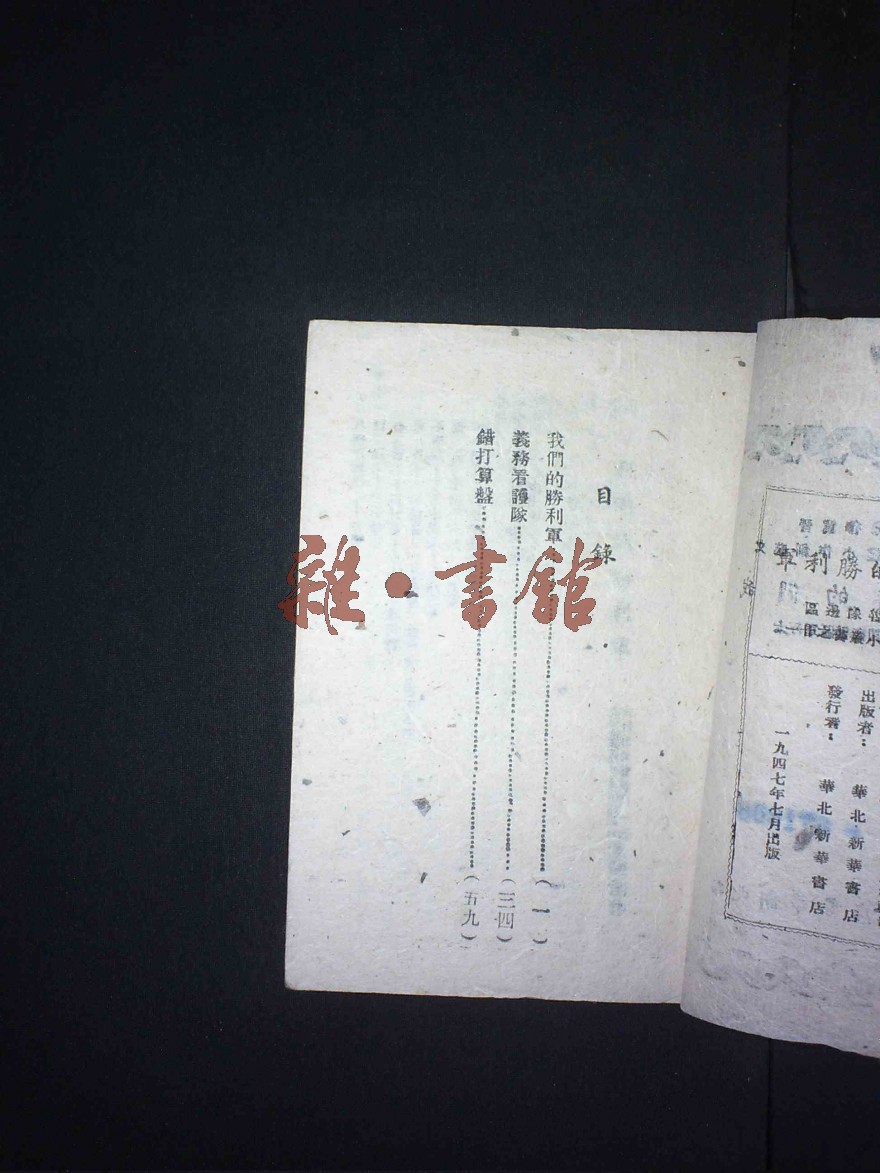 目錄
我們的勝利軍……(一)
義務看護隊……(三四)
錯打算盤……(五九)
雜·書館
的勝利軍
豫邊區
出版者：華北新華書店
發行者：華北新華書店
一九四七年七月出版